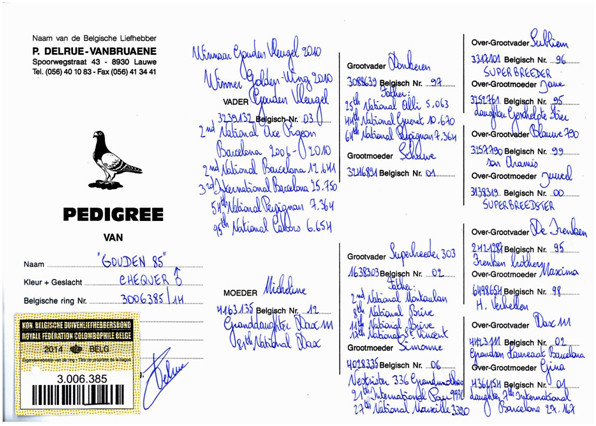 Naam van de Belgische Liefhebber
P. DELRUE-VANBRUAENE
Spoorwegstraat 43 - 8930 Lauwe
Tel. (056) 40 10 83 - Fax (056) 41 34 41
PEDIGREE
VAN
Naam "GOUDEN 85"
Kleur + Geslacht CHEQUER ♂
Belgische ring Nr. 3006385/14
KON. BELGISCHE DUIVENLIEFHEBBERSBOND
ROYALE FEDERATION COLOMBOPHILE BELGE
2014 BELG
3.006.385
Delrue
Winnaar Gouden Vleugel 2010
Winner Golden Wing 2010
VADER Gouden Vleugel
3239132 Belgisch Nr. 03
2nd National Ace Pigeon
Barcelona 2006-2010
2nd National Barcelona 12.641
3rd International Barcelona 25.750
National Perpignan 7.364
National Cahors 6.654
MOEDER Micheline
4163135 Belgisch Nr. 12
Granddaughter Dax III
National Dax
Grootvader Donkeren
3088639 Belgisch Nr. 97
Father:
25th National 5.063
National 10.670
64th National Perpignan 7.364
Grootmoeder Schuwe
3216891 Belgisch Nr. 01
Grootvader Superkweeker 303
1638303 Belgisch Nr. 02
Father:
2nd National Montauban
National Brive
National Brive
National St Vincent
Grootmoeder Simonne
4028336 Belgisch Nr. 06
Nestsister 336 Grandmother
International Pau
27th National Marseille
Over-Grootvader
3317101 Belgisch Nr. 96
SUPERBREEDER
Over-Grootmoeder Jane
3252761 Belgisch Nr. 95
daughter
Over-Grootvader Blauwe 790
3157790 Belgisch Nr. 99
son Aramis
Over-Grootmoeder
3138319 Belgisch Nr. 00
SUPERBREEDSTER
Over-Grootvader De
Belgisch Nr. 95
brothers
Over-Grootmoeder Maxima
6498698 Belgisch Nr. 98
H. Verhellen
Over-Grootvader Dax III
Belgisch Nr. 02
Grandson Laureaat Barcelona
Over-Grootmoeder Gina
Belgisch Nr. 01
daughter 7th International
Barcelona